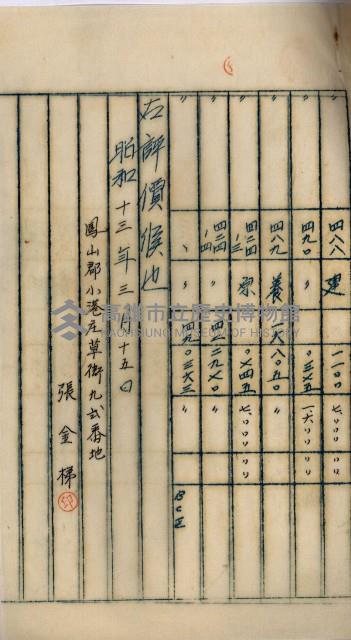 〃 四八八 建 一一〇〇 七〇〇〇〇
〃 四九〇 〃 〇三七五 一六〇〇〇
〃 四八九 養 一六八〇五 〃
〃 四二四 原 〇七四五 七〇〇〇
四二四 〃 四一二九七〇
〃 四九〇三六三
右評價候也
昭和十三年三月十五日
鳳山郡小港庄草衙九弍番地
張金梯
印
高雄市立歷史博物館
KAOHSIUNG MUSEUM OF HISTORY